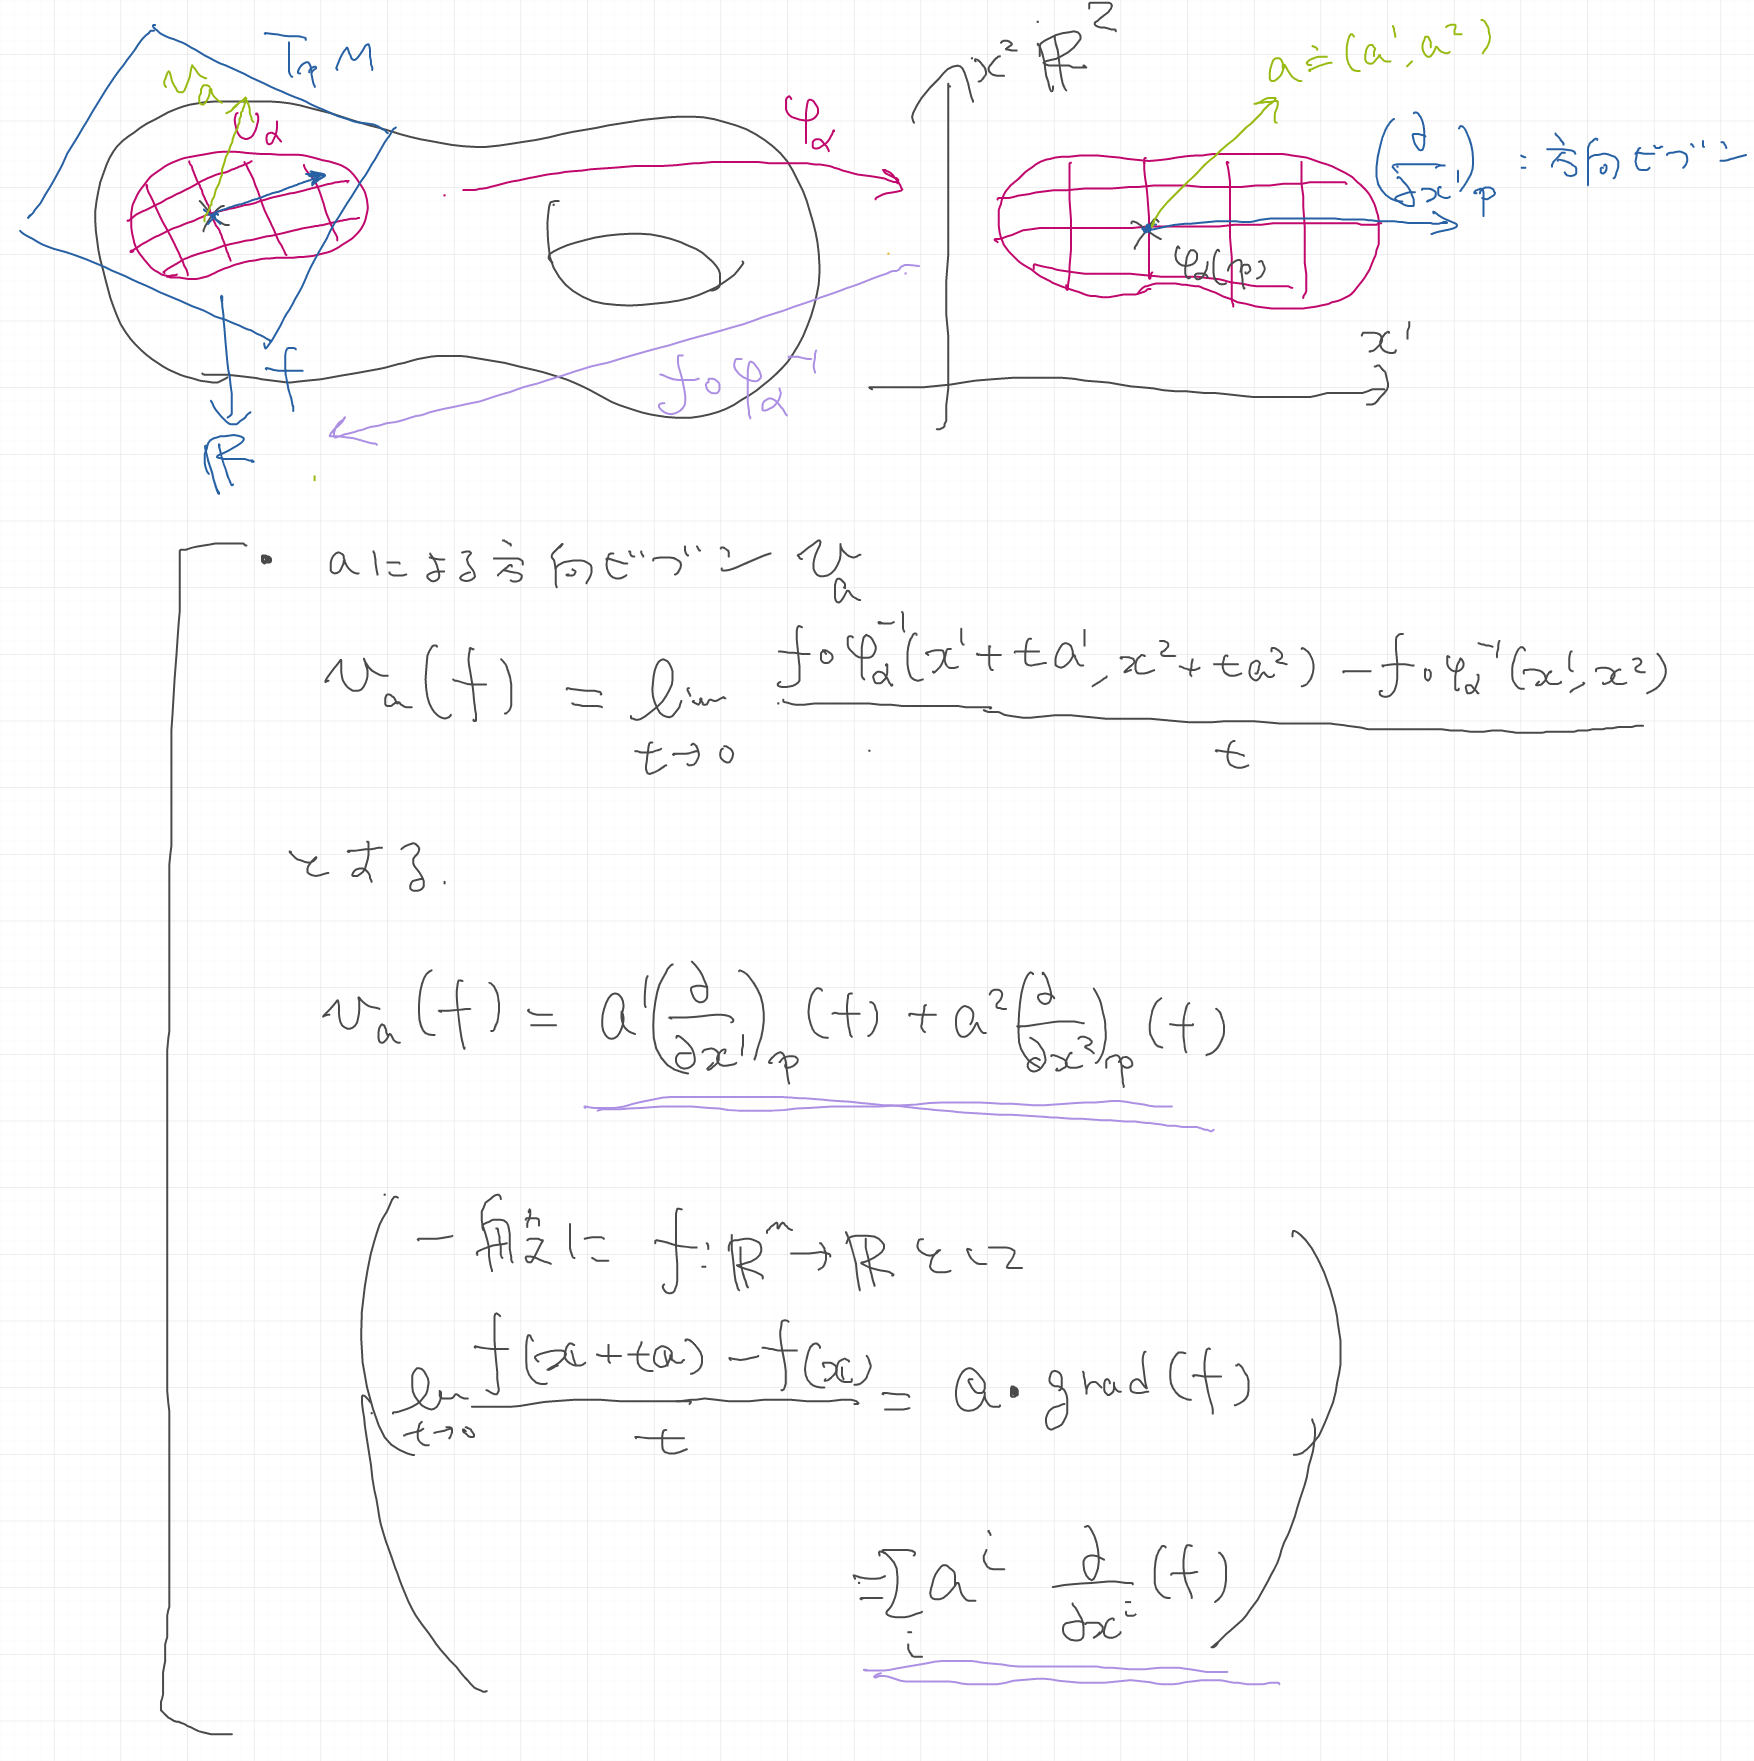 T_p M
v_a
U_α
φ_α
x² ℝ²
a = (a¹, a²)
(∂/∂x¹)_p : 方向ビブン
φ_α(p)
x¹
f∘φ_α⁻¹
f
ℝ
・ aによる方向ビブン v_a
v_a(f) = lim_{t→0} (f∘φ_α⁻¹(x¹+ta¹, x²+ta²) − f∘φ_α⁻¹(x¹, x²)) / t
とする.
v_a(f) = a¹(∂/∂x¹)_p (f) + a²(∂/∂x²)_p (f)
一般に f: ℝⁿ → ℝ として
lim_{t→0} (f(x+ta) − f(x)) / t = a・grad(f)
= Σ_i aⁱ ∂/∂xⁱ (f)